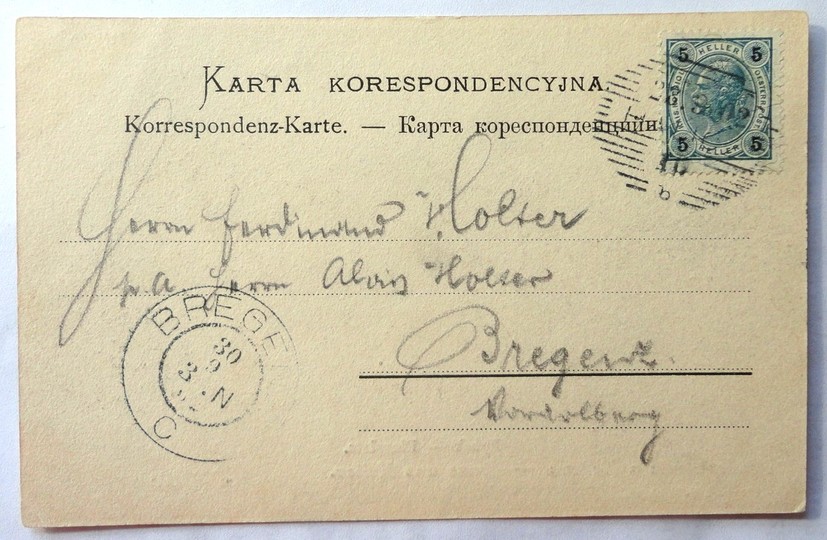 KARTA KORESPONDENCYJNA.
Korrespondenz-Karte. — Карта кореспонденцийн
5 HELLER 5
5 HELLER 5
Herrn Ferdinand Holter
p. A. Herrn Alois Holter
Bregenz.
Vorarlberg
BREGE